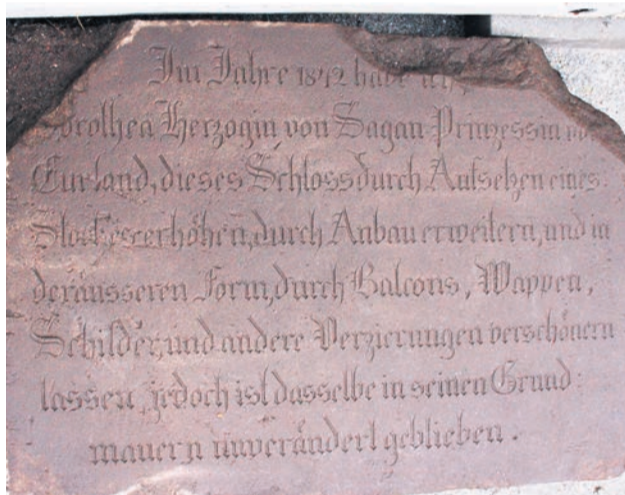 Im Jahre 1842 habe ich,
Dorothea Herzogin von Sagan Prinzessin von
Curland, dieses Schloss durch Aufsetzen eines
Stockes erhöhen, durch Anbau erweitern, und in
der äusseren Form, durch Balcons, Wappen,
Schilder, und andere Verzierungen verschönern
lassen, jedoch ist dasselbe in seinen Grund:
mauern unverändert geblieben.